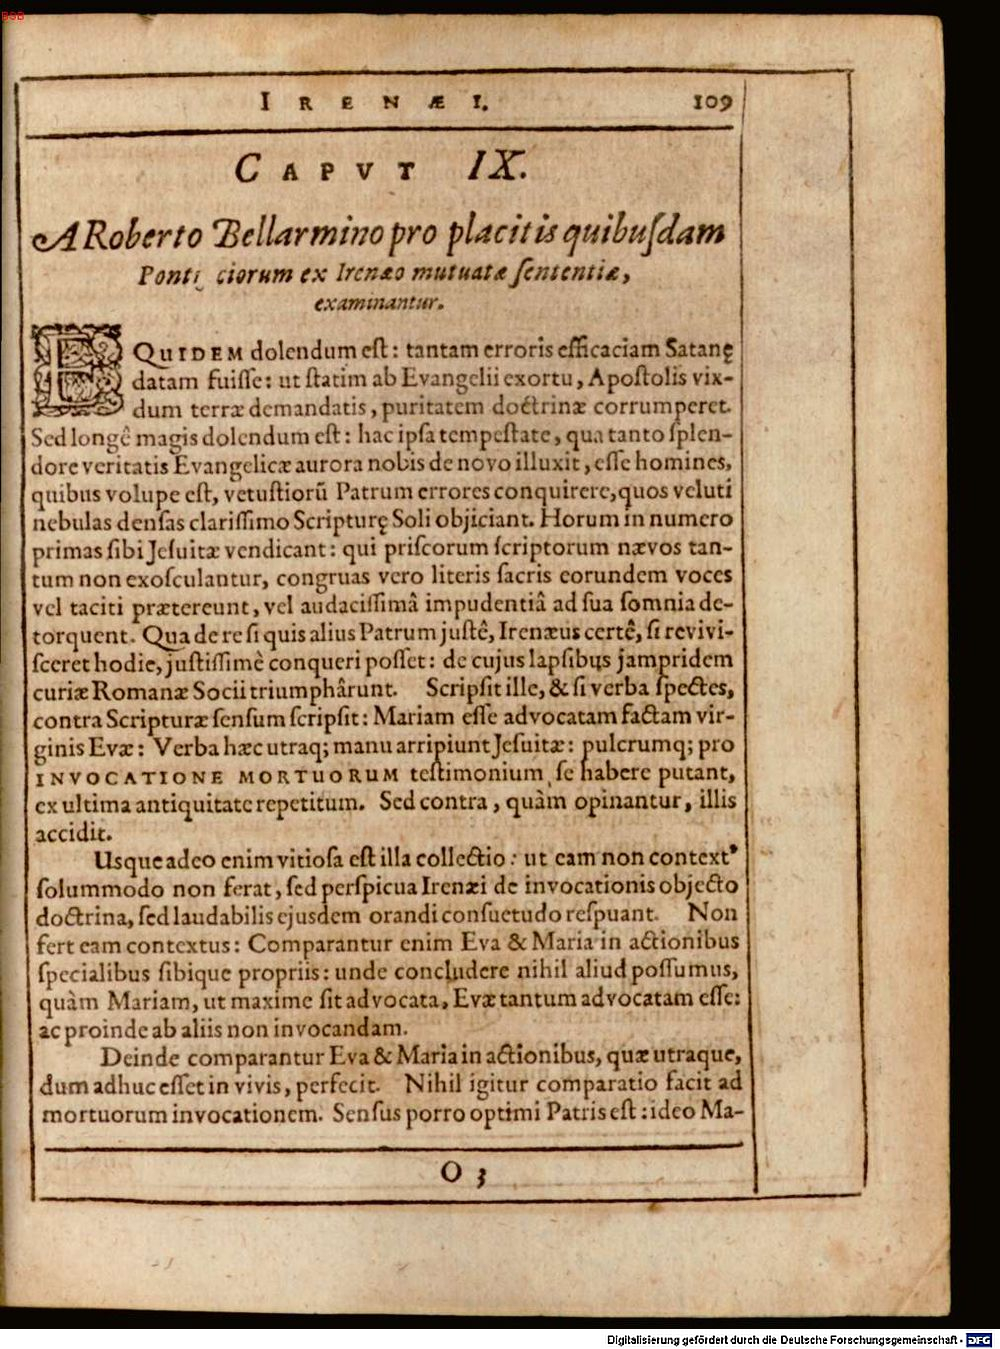 BSB
IRENÆI. 109
CAPVT IX.
A Roberto Bellarmino pro placitis quibuſdam
Ponti ciorum ex Irenæo mutuatæ ſententiæ,
examinantur.
EQUIDEM dolendum eſt: tantam erroris efficaciam Satanę
datam fuiſſe: ut ſtatim ab Evangelii exortu, Apoſtolis vix-
dum terræ demandatis, puritatem doctrinæ corrumperet.
Sed longê magis dolendum eſt: hac ipſa tempeſtate, qua tanto ſplen-
dore veritatis Evangelicæ aurora nobis de novo illuxit, eſſe homines,
quibus volupe eſt, vetuſtiorū Patrum errores conquirere, quos veluti
nebulas denſas clariſſimo Scripturę Soli objiciant. Horum in numero
primas ſibi Jeſuitæ vendicant: qui priſcorum ſcriptorum nævos tan-
tum non exoſculantur, congruas vero literis ſacris eorundem voces
vel taciti prætereunt, vel audaciſſimâ impudentiâ ad ſua ſomnia de-
torquent. Qua de re ſi quis alius Patrum juſtê, Irenæus certê, ſi revivi-
ſceret hodie, juſtiſſimè conqueri poſſet: de cujus lapſibus jampridem
curiæ Romanæ Socii triumphârunt. Scripſit ille, & ſi verba ſpectes,
contra Scripturæ ſenſum ſcripſit: Mariam eſſe advocatam factam vir-
ginis Evæ: Verba hæc utraq; manu arripiunt Jeſuitæ: pulcrumq; pro
INVOCATIONE MORTUORUM teſtimonium ſe habere putant,
ex ultima antiquitate repetitum. Sed contra, quàm opinantur, illis
accidit.
Usque adeo enim vitioſa eſt illa collectio: ut eam non context⁹
ſolummodo non ferat, ſed perſpicua Irenæi de invocationis objecto
doctrina, ſed laudabilis ejusdem orandi conſuetudo reſpuant. Non
fert eam contextus: Comparantur enim Eva & Maria in actionibus
ſpecialibus ſibique propriis: unde concludere nihil aliud poſſumus,
quàm Mariam, ut maxime ſit advocata, Evæ tantum advocatam eſſe:
ac proinde ab aliis non invocandam.
Deinde comparantur Eva & Maria in actionibus, quæ utraque,
dum adhuc eſſet in vivis, perfecit. Nihil igitur comparatio facit ad
mortuorum invocationem. Senſus porro optimi Patris eſt: ideo Ma-
O 3
Digitalisierung gefördert durch die Deutsche Forschungsgemeinschaft - DFG